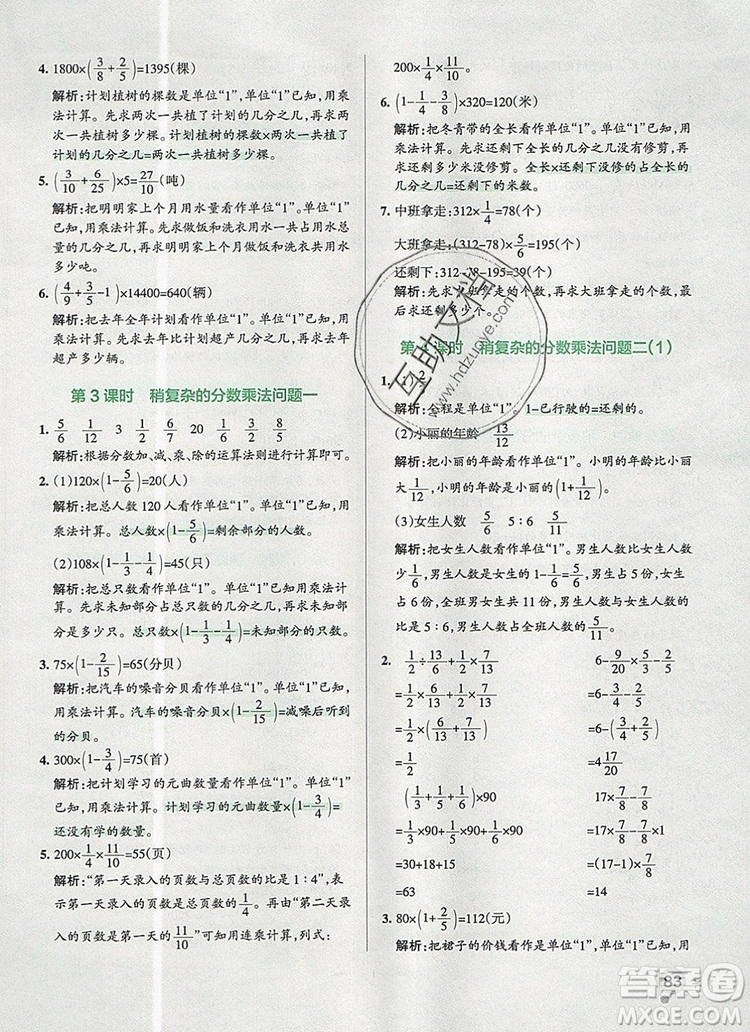 4. 1800×(3/8+2/5)=1395(棵)
解析:计划植树的棵数是单位“1”,单位“1”已知,用乘
法计算。先求两次一共植树了计划的几分之几,再求
两次一共植树多少棵。计划植树的棵数×两次一共植了
计划的几分之几=两次一共植树多少棵。
5. (3/10+6/25)×5=27/10(吨)
解析:把明明家上个月用水量看作单位“1”,单位“1”
已知,用乘法计算。先求明明家上个月做饭和洗衣共
用水几分之几,再求明明家上个月做饭和洗衣共用水
多少吨。
6. (4/9+3/5-1)×14400=640(辆)
解析:把去年全年计划看作单位“1”,单位“1”已知,用
乘法计算。先求去年超产几分之几,再求去年
超产多少辆。
第3课时 稍复杂的分数乘法问题一
1. 5/6 1/12 3 1/6 7/12 20 1/4 3/32 5/6
解析:根据分数加、减、乘、除的运算法则进行计算即可。
2. (1)120×(1-5/6)=20(人)
解析:把总人数120人看作单位“1”,单位“1”已知,用
乘法计算。总人数×(1-5/6)=剩余部分的人数。
(2)108×(1-1/3-1/4)=45(只)
解析:把总只数看作单位“1”,单位“1”已知用乘法计
算。先求未知部分占总只数的几分之几,再求未知部
分是多少只。总只数×(1-1/3-1/4)=未知部分的只数。
3. 75×(1-2/15)=65(分贝)
解析:把汽车的噪音分贝看作单位“1”,单位“1”已知,
用乘法计算。汽车的噪音分贝×(1-2/15)=减噪后听到
的分贝。
4. 300×(1-3/4)=75(首)
解析:把计划学习的元曲数量看作单位“1”,单位“1”已
知,用乘法计算。计划学习的元曲数量×(1-3/4)=
还没有学的数量。
5. 200×1/4×11/10=55(页)
解析:“第一天录入的页数与总页数的比是1:4”,就是
第一天录入的页数占总页数的1/4。再由“第二天录
入的页数是第一天的11/10”可知用连乘计算,列式:
200×1/4×11/10。
6. (1-1/4-3/8)×320=120(米)
解析:把冬青带的全长看作单位“1”。单位“1”已知,用
乘法计算。先求还剩下全长的几分之几没有修剪,再
求还剩下多少米没修剪。全长×还剩下没修的占全长的
几分之几=还剩下的米数。
7. 中班拿走:312×1/4=78(个)
大班拿走:(312-78)×5/6=195(个)
还剩下:312-78-195=39(个)
解析:先求中班拿走的个数,再求大班拿走的个数,最
后求剩下的个数。
课时 稍复杂的分数乘法问题二(1)
1. (1)2/3
解析:全程是单位“1”。1-已行驶的=还剩的。
(2)小丽的年龄 13/12
解析:把小丽的年龄看作单位“1”。小明的年龄比小丽大
1/12,小明的年龄是小丽的(1+1/12)。
(3)女生人数 5/6 5:6 5/11
解析:把女生人数看作单位“1”,男生人数比女生人数少
1/6,男生人数是女生人数的1-1/6=5/6。男生占5份,女生
占6份,全班男女生共11份,所以男生人数与女生人数的
比是5:6,男生人数是全班人数的5/11。
2. 1/2÷13/6+1/2×7/13 6-9/20×5/3-2/5
=1/2×6/13+1/2×7/13 =6-3/4-2/5
=1/2×(6/13+7/13) =6-(3/4+2/5)
=1/2 =4 17/20
(1/3+1/5+1/6)×90 17×7/8-7/8
=1/3×90+1/5×90+1/6×90 =17×7/8-1×7/8
=30+18+15 =(17-1)×7/8
=63 =14
3. 80×(1+2/5)=112(元)
解析:把裙子的价钱看作单位“1”,单位“1”已知,用
83
互助文档
www.hdzuoye.com
答案卷
MXQE.COM